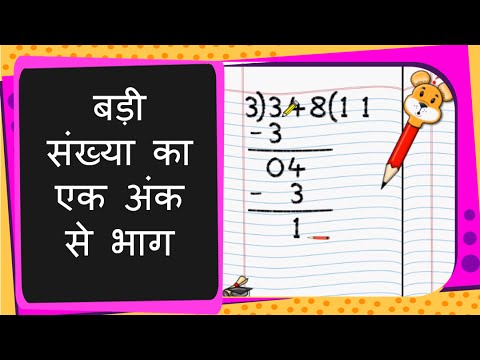 बड़ी
संख्या का
एक अंक
से भाग
3)348(11
-3
04
- 3
1